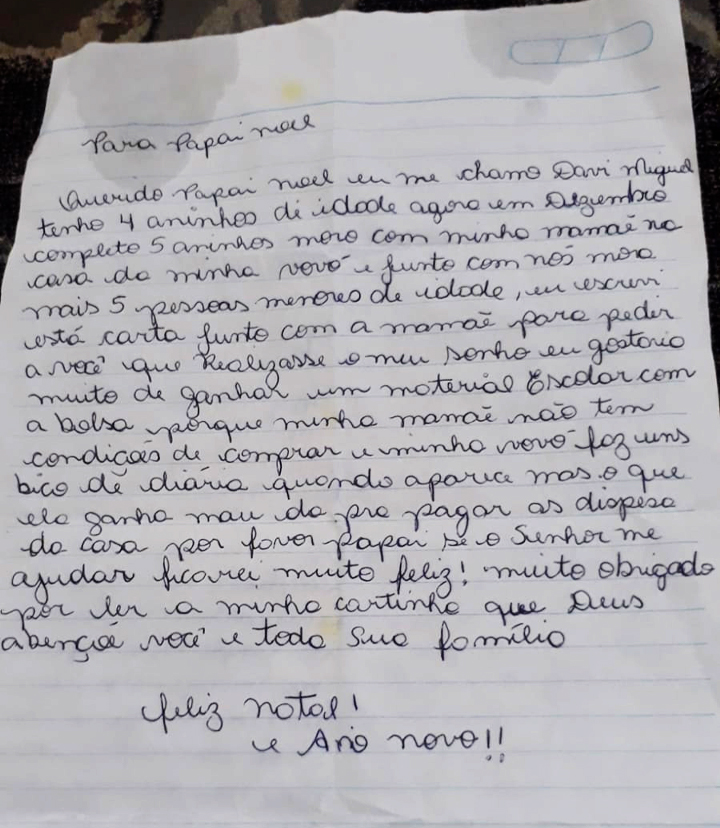 Para Papai noel
Querido Papai noel eu me chamo Davi Miguel
tenho 4 aninhos di idade agora em Dezembro
completo 5 aninhos moro com minha mamaẽ na
casa da minha vovó e junto com nós mora
mais 5 pessoas menores de idade, eu escrevi
está carta junto com a mamaẽ para pedir
a você que Realizasse o meu sonho eu gostaria
muito de ganhar um material Escolar com
a bolsa porque minha mamaẽ não tem
condições de comprar e minha vovó faz uns
bico dẽ diária quando aparece mas o que
ela ganha mau da pra pagar as dispesa
da casa por favor Papai se o Senhor me
ajudar ficarei muito feliz! muito obrigado
por ler a minha cartinha que Deus
abençoẽ você e toda sua família
feliz natal!
e Ano novo!!